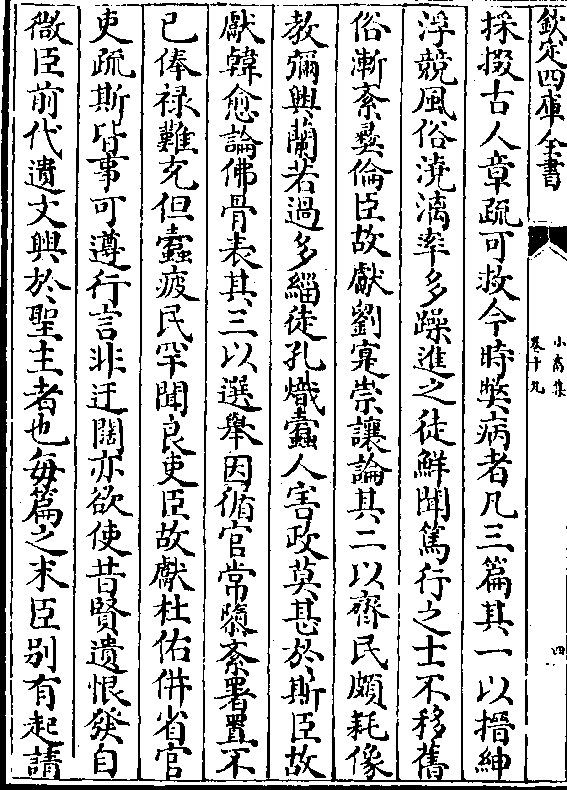 欽定四庫全書
小畜集
卷十九
四
採掇古人章疏可救今時獘病者凡三篇其一以搢紳
浮競風俗澆漓率多躁進之徒鮮聞篤行之士不移舊
俗漸紊彛倫臣故獻劉寔崇讓論其二以齊民頗耗像
教彌興蘭若過多緇徒孔熾蠧人害政莫甚於斯臣故
獻韓愈論佛骨表其三以選舉因循官常隳紊署置不
已俸禄難充但蠧疲民罕聞良吏臣故獻杜佑併省官
吏疏斯皆事可遵行言非迂闊亦欲使昔賢遺恨發自
微臣前代遺文興於聖主者也每篇之末臣别有起請